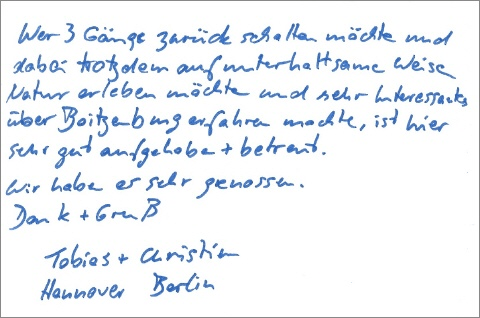 Wer 3 Gänge zurück schalten möchte und
dabei trotzdem auf unterhaltsame Weise
Natur erleben möchte und sehr Interessantes
über Boitzenburg erfahren möchte, ist hier
sehr gut aufgehoben + betreut.
Wir haben es sehr genossen.
Dank + Gruß
Tobias + Christian
Hannover Berlin